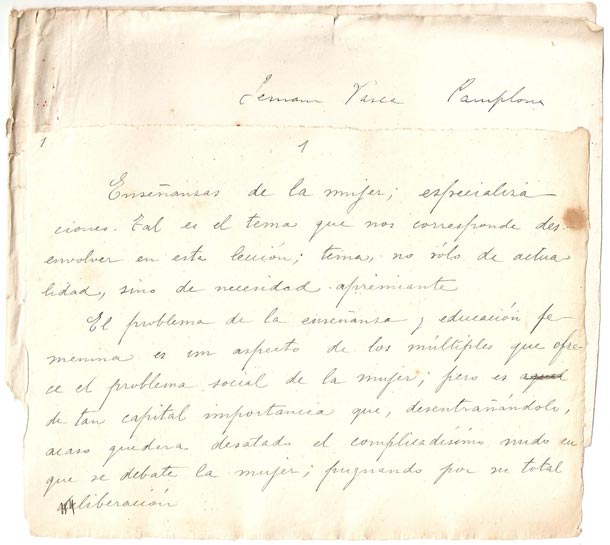 Semana Vasca Pamplona
1 1
Enseñansas de la mujer; especializa
ciones. Tal es el tema que nos corresponde des
envolver en esta lección; tema, no sólo de actua
lidad, sino de necesidad apremiante
El problema de la enseñansa y educación fe
menina es un aspecto de los múltiples que ofre
ce el problema social de la mujer; pero es
de tan capital importancia que, desentrañándolo,
acaso quedara desatado el complicadísimo nudo en
que se debate la mujer, pugnando por su total
liberación